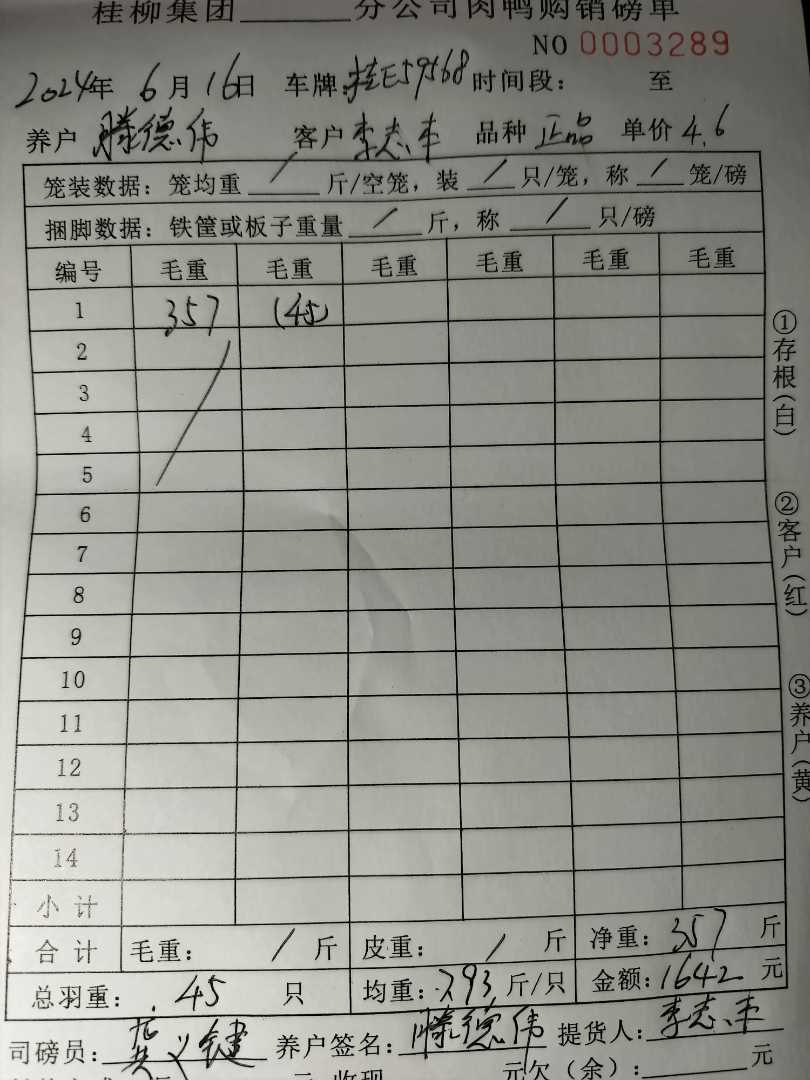 桂柳集团________分公司肉鸭购销磅单
NO 0003289
2024年 6月16日 车牌:桂E59568 时间段: 至
养户 滕德伟 客户 李志丰 品种 正品 单价 4.6
笼装数据:笼均重 / 斤/空笼,装 / 只/笼,称 / 笼/磅
捆脚数据:铁筐或板子重量 / 斤,称 / 只/磅
编号 毛重 毛重 毛重 毛重 毛重 毛重
1 357 (45)
2
3
4
5
6
7
8
9
10
11
12
13
14
小计
合计 毛重: / 斤 皮重: / 斤 净重:357 斤
总羽重: 45 只 均重:7.93 斤/只 金额:1642 元
司磅员: 义键 养户签名:滕德伟 提货人:李志丰
元 收现 元欠(余): 元
①存根(白)
②客户(红)
③养户(黄)